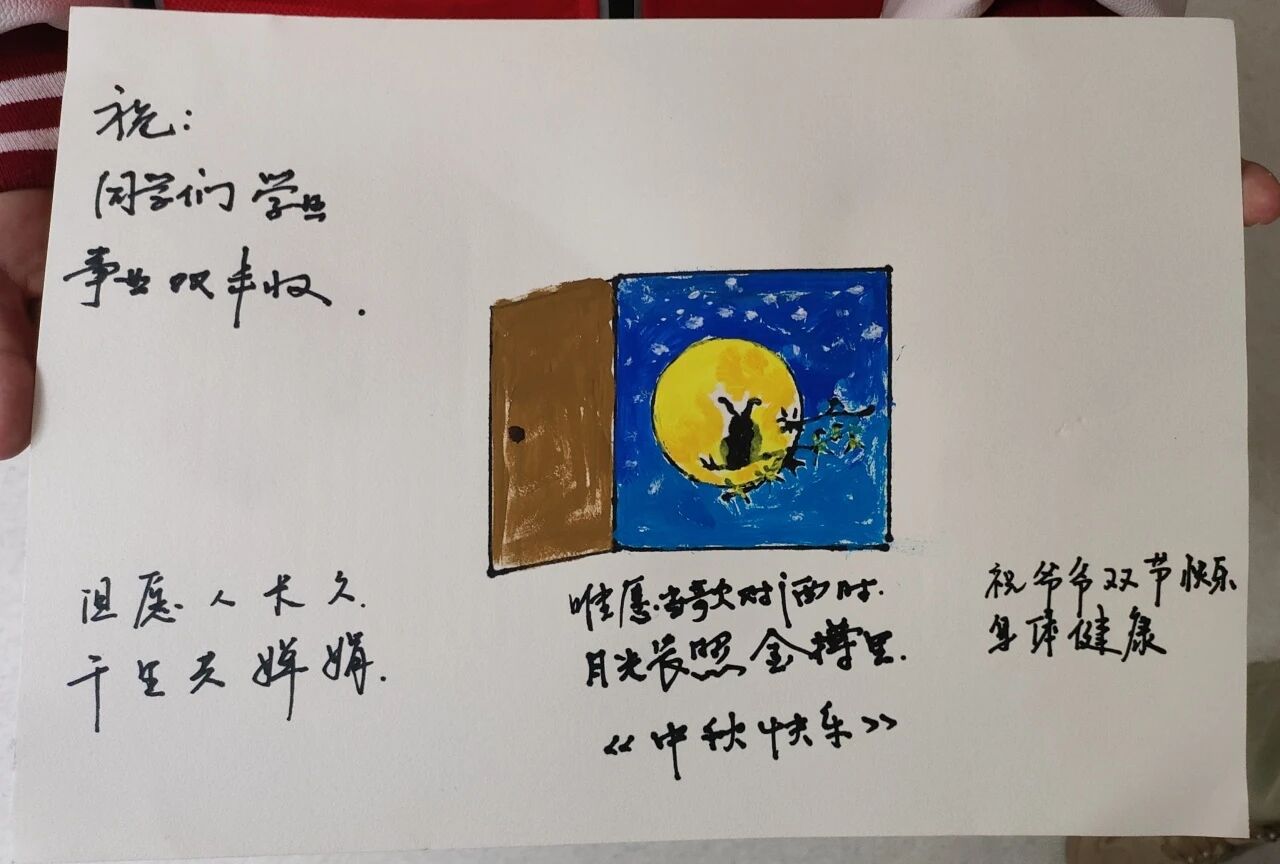 祝：
同学们学业
事业双丰收.
但愿人长久.
千里共婵娟.
唯愿当歌对酒时.
月光长照金樽里.
《中秋快乐》
祝爷爷双节快乐
身体健康